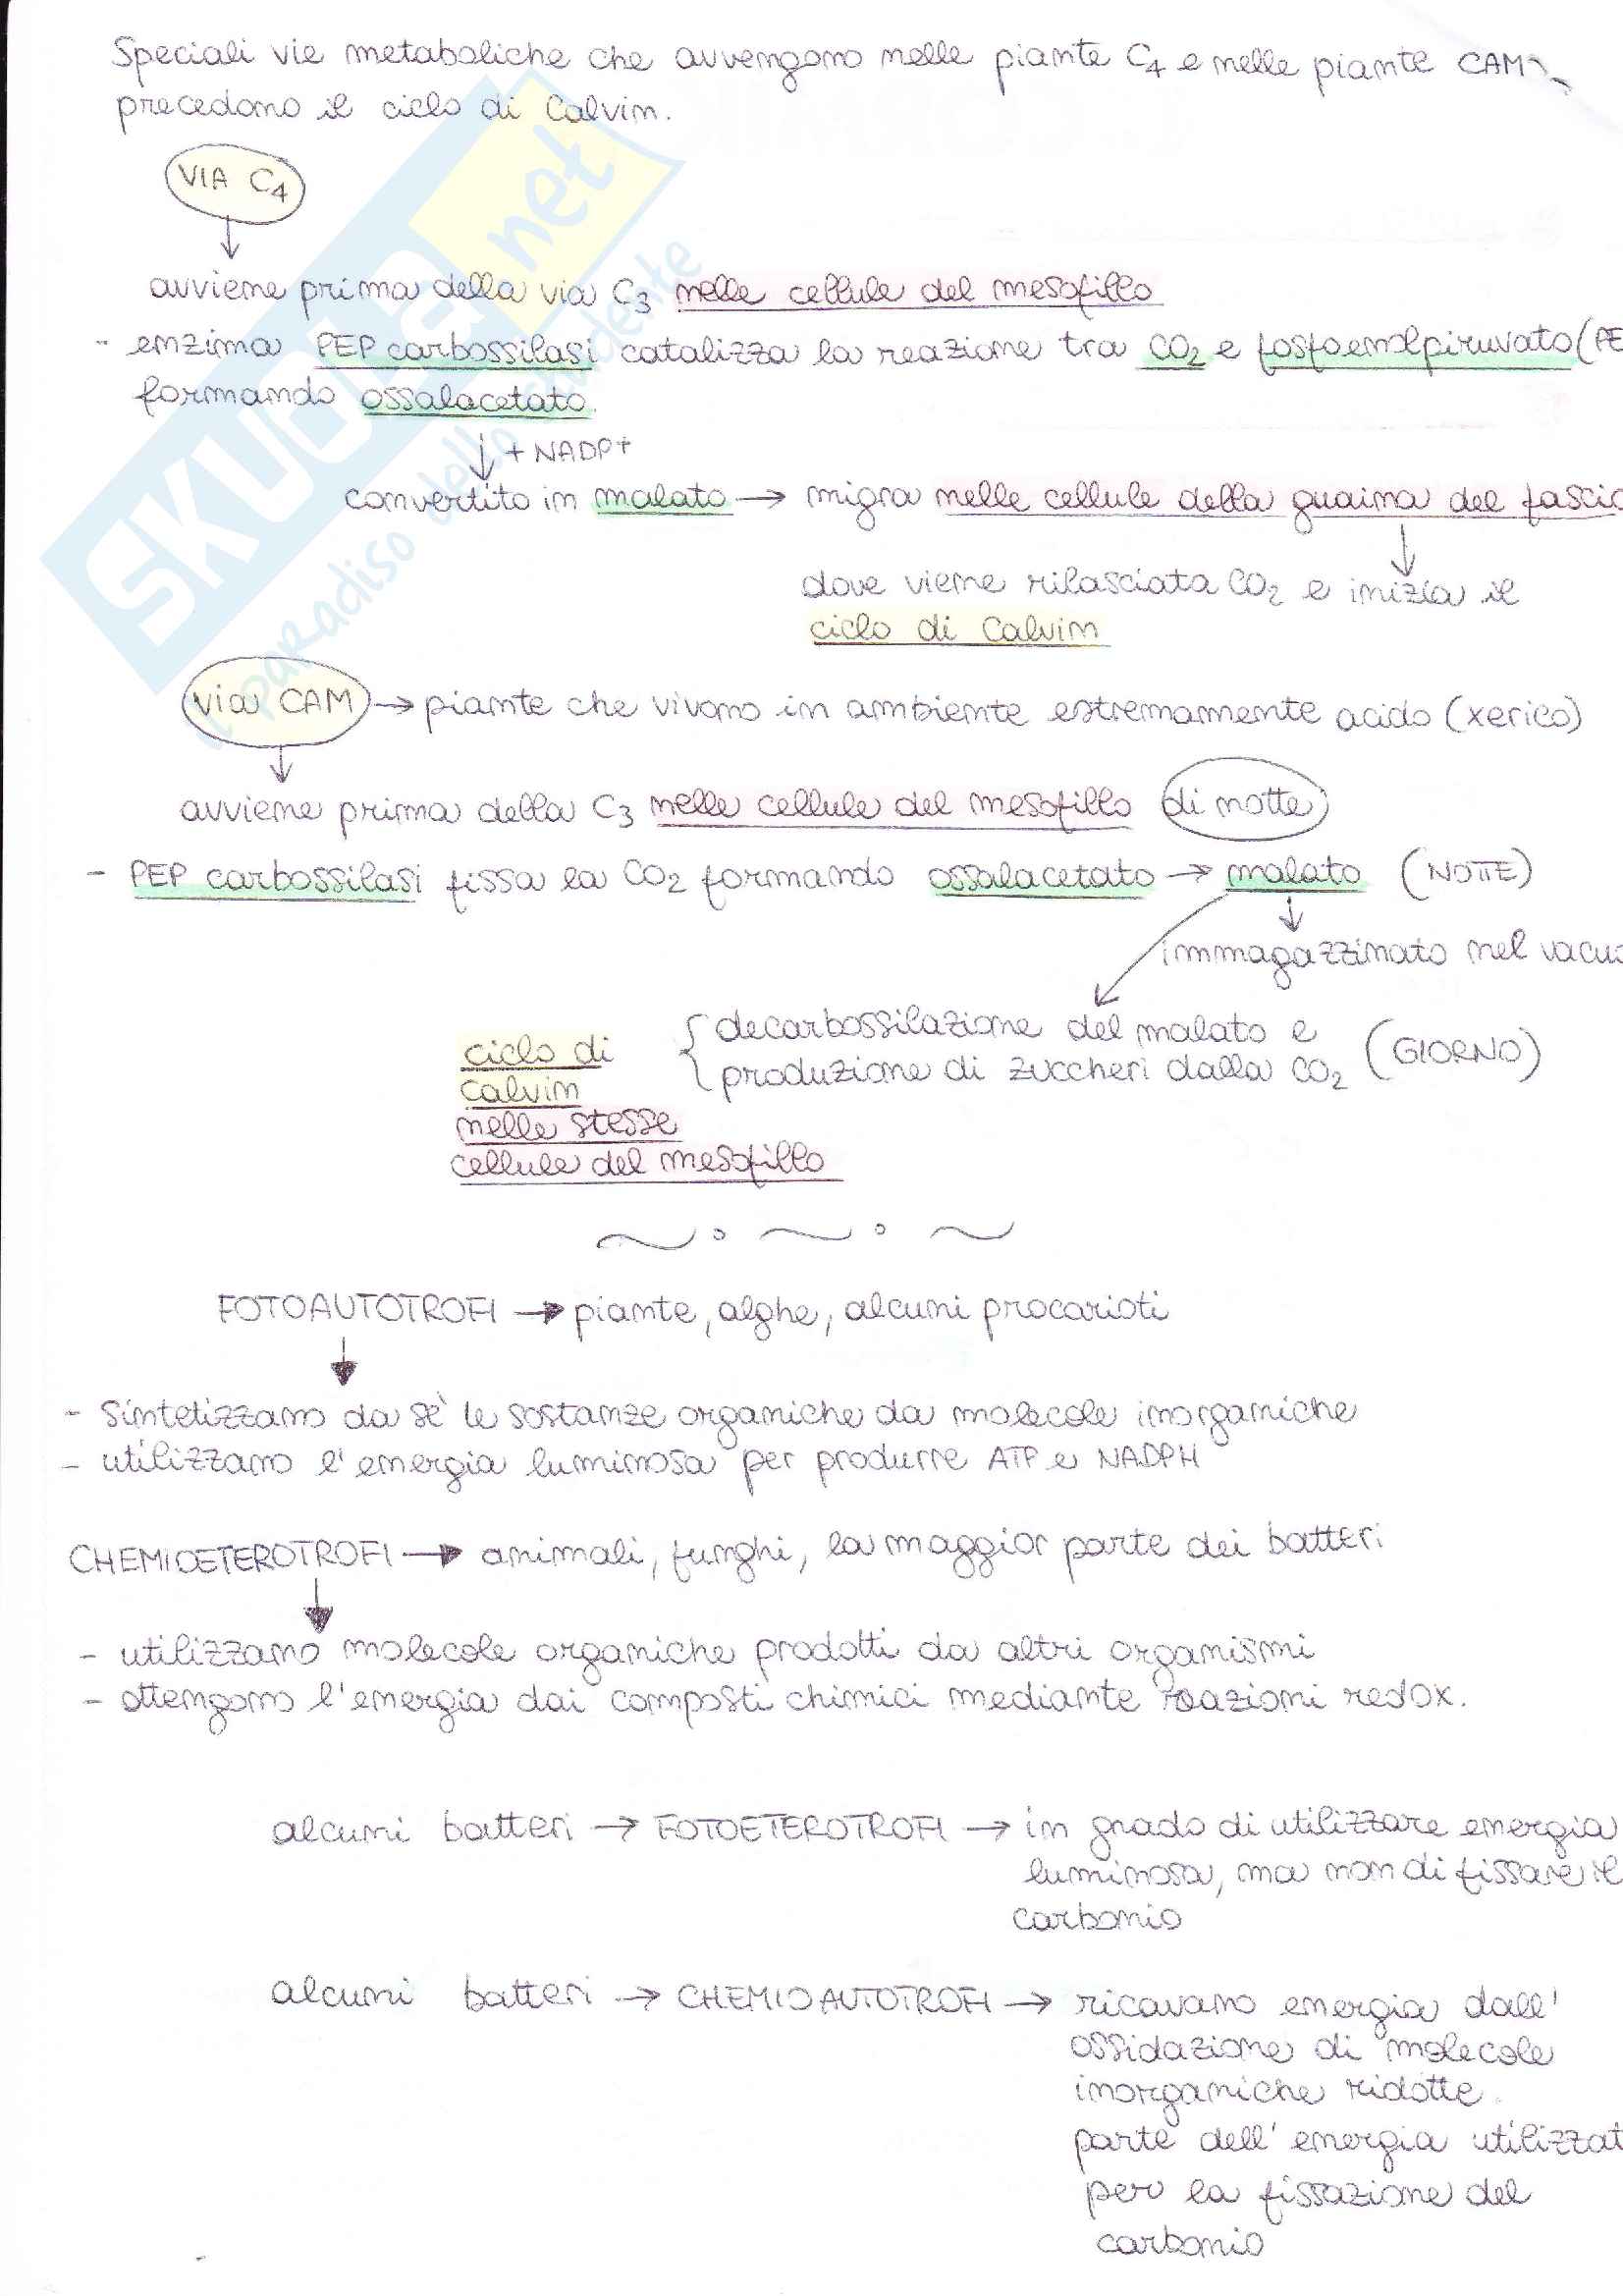 Speciali vie metaboliche che avvengono nelle piante C4 e nelle piante CAM
precedono il ciclo di Calvin.
VIA C4
avviene prima della via C3 nelle cellule del mesofillo
- enzima PEP carbossilasi catalizza la reazione tra CO2 e fosfoenolpiruvato (PE
formando ossalacetato.
+ NADP+
convertito in malato → migra nelle cellule della guaina del fascio
dove viene rilasciata CO2 e inizia il
ciclo di Calvin
via CAM → piante che vivono in ambiente estremamente acido (xerico)
avviene prima della C3 nelle cellule del mesofillo di notte
- PEP carbossilasi fissa la CO2 formando ossalacetato → malato (NOTTE)
immagazzinato nel vacuo
decarbossilazione del malato e
produzione di zuccheri dalla CO2 (GIORNO)
ciclo di
Calvin
nelle stesse
cellule del mesofillo
FOTOAUTOTROFI → piante, alghe, alcuni procarioti
- sintetizzano da sè le sostanze organiche da molecole inorganiche
- utilizzano l'energia luminosa per produrre ATP e NADPH
CHEMIOETEROTROFI → animali, funghi, la maggior parte dei batteri
- utilizzano molecole organiche prodotti da altri organismi
- ottengono l'energia dai composti chimici mediante reazioni redox.
alcuni batteri → FOTOETEROTROFI → in grado di utilizzare energia
luminosa, ma non di fissare il
carbonio
alcuni batteri → CHEMIOAUTOTROFI → ricavano energia dall'
ossidazione di molecole
inorganiche ridotte.
parte dell'energia utilizzat
per la fissazione del
carbonio
SKUOLA.net
il paradiso dello studente